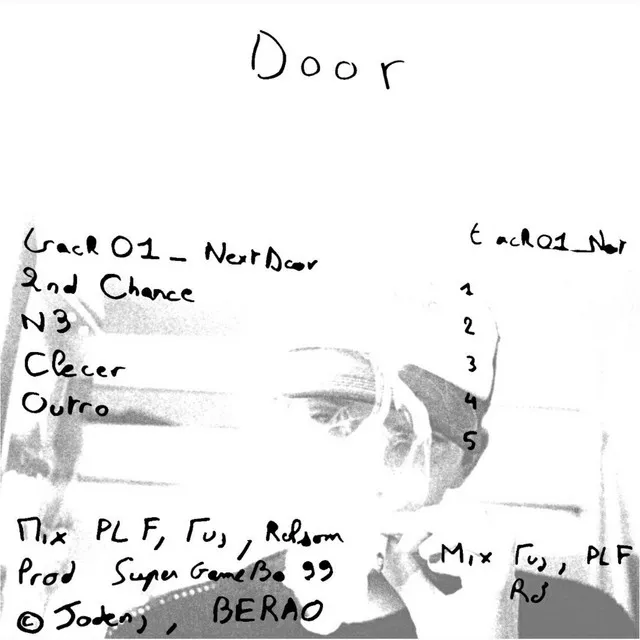 Door
track01_NextDoor
2nd Chance
N3
Clecer
Outro
track01_Next
1
2
3
4
5
Mix PLF,
Prod SuperGameBo 99
© Jodenj, BERAO
Mix PLF